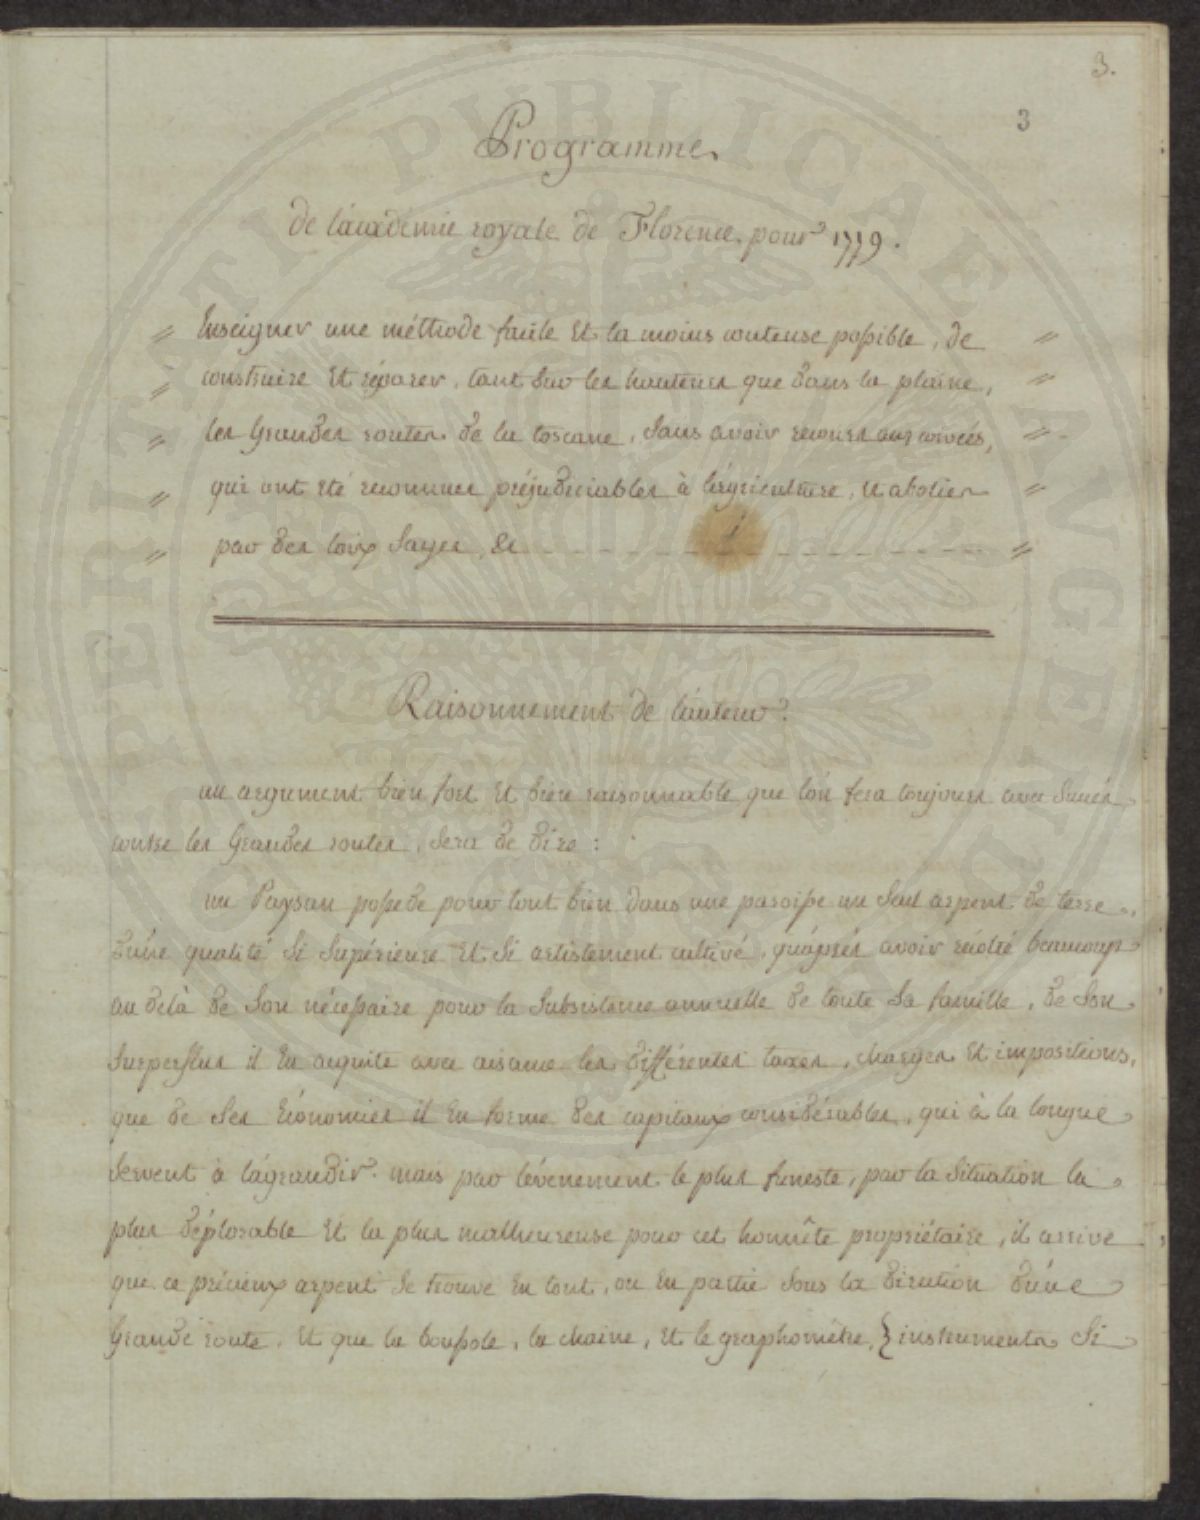 3.
3
Programme
de l'académie royale de Florence, pour 1779.
" Enseigner une méthode facile et la moins couteuse possible, de "
" construire et réparer, tant sur les hauteurs que dans la plaine, "
" les Grandes routes de la toscane, sans avoir recours aux corvées, "
" qui ont été reconnues préjudiciables à l'agriculture, et abolies "
" par des loix sages, &c "
Raisonnement de l'auteur.
un argument bien fort et bien raisonnable que l'on fera toujours avec succès
contre les Grandes routes, sera de dire :
un Paysan possede pour tout bien dans une paroisse un seul arpent de terre
d'une qualité si supérieure et si artistement cultivé, qu'après avoir récolté beaucoup
au delà de son nécessaire pour la subsistance annuelle de toute sa famille, de son
surperflus il en acquite avec aisance les différentes taxes, charges et impositions,
que de ses économies il en forme des capitaux considérables, qui à la longue
servent à l'agrandir. mais par l'évenement le plus funeste, par la situation la
plus déplorable et la plus malheureuse pour cet honnête propriétaire, il arrive
que ce précieux arpent se trouve en tout, ou en partie sous la direction d'une
Grande route, et que la boussole, la chaine, et le graphomètre, } instruments si
PERITI PUBLICAE AUGENDAE